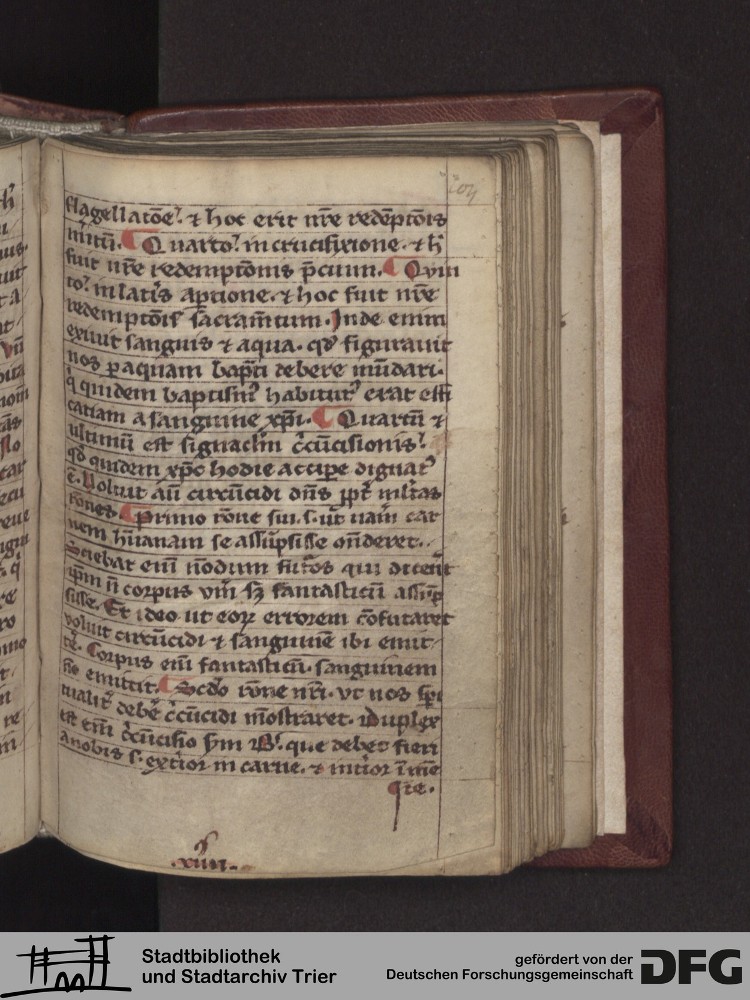 104
flagellatōe. ⁊ hoc erit nr̄e redēptōis
mitū. Quarto. in crucifixione. ⁊ h̄
fuit nr̄e redemptōnis p̄cium. Quin
to. in lat̄is ap̄tione. ⁊ hoc fuit nr̄e
redemptōis sacram̄tum. Inde enim
exiuit sanguis ⁊ aqua. qd̓ figurauit
nos ꝑ aquam bapt̄i debere mūdari.
q̓ quidem baptism̓ habitur̓ erat effi
catiam a sanguine xp̄i. Quartū ⁊
ultimū est signaclm̄ c̄cūcisionis.
qd̓ quidem xp̄c hodie accipe dignat̓
ē. Uoluit aū circūcidi dn̄s ppt̄ mltas
rōnes. Primo rōne sui. s. ut uām car
nem hūanam se assūpsisse on̄deret.
Sciebat eni n̄odum fut̄os qui dicent
ip̄m n̄ corpus vm̄ sꝫ fantasticū assūp
sisse. Et ideo ut eoꝝ errorem cōfutaret
voluit circūcidi ⁊ sanguinē ibi emit
te. Corpus eni fantasticū. sanguinem
nō emittit. Scd̓o rōne nr̄i. vt nos sp̄i
tualit̓ debe c̄cūcidi mōstraret. Duplex
est em̄ c̄cūcisio sm̄ B. que debet fieri
a nobis s. ext̓ior in carne. ⁊ int̓ior ī mē
te.
.xiiii.
Stadtbibliothek
und Stadtarchiv Trier
gefördert von der
Deutschen Forschungsgemeinschaft
DFG